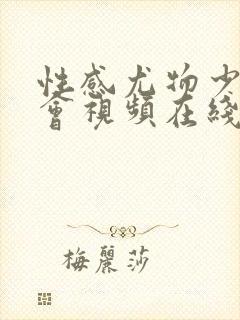 性感尤物少
會視頻在綫
梅麗莎